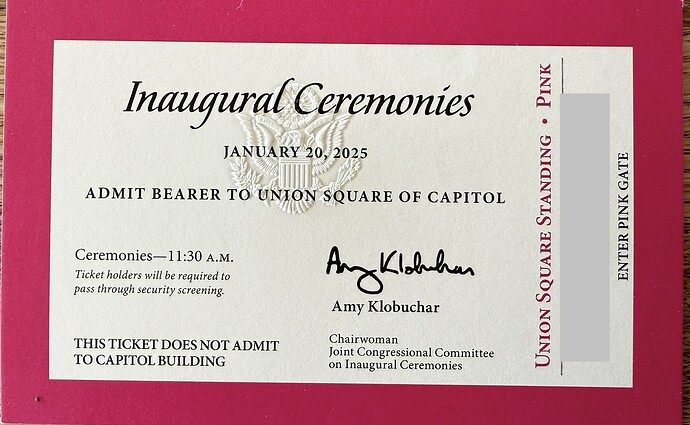 Inaugural Ceremonies
JANUARY 20, 2025
ADMIT BEARER TO UNION SQUARE OF CAPITOL
Ceremonies—11:30 A.M.
Ticket holders will be required to
pass through security screening.
THIS TICKET DOES NOT ADMIT
TO CAPITOL BUILDING
Amy Klobuchar
Amy Klobuchar
Chairwoman
Joint Congressional Committee
on Inaugural Ceremonies
UNION SQUARE STANDING • PINK
ENTER PINK GATE